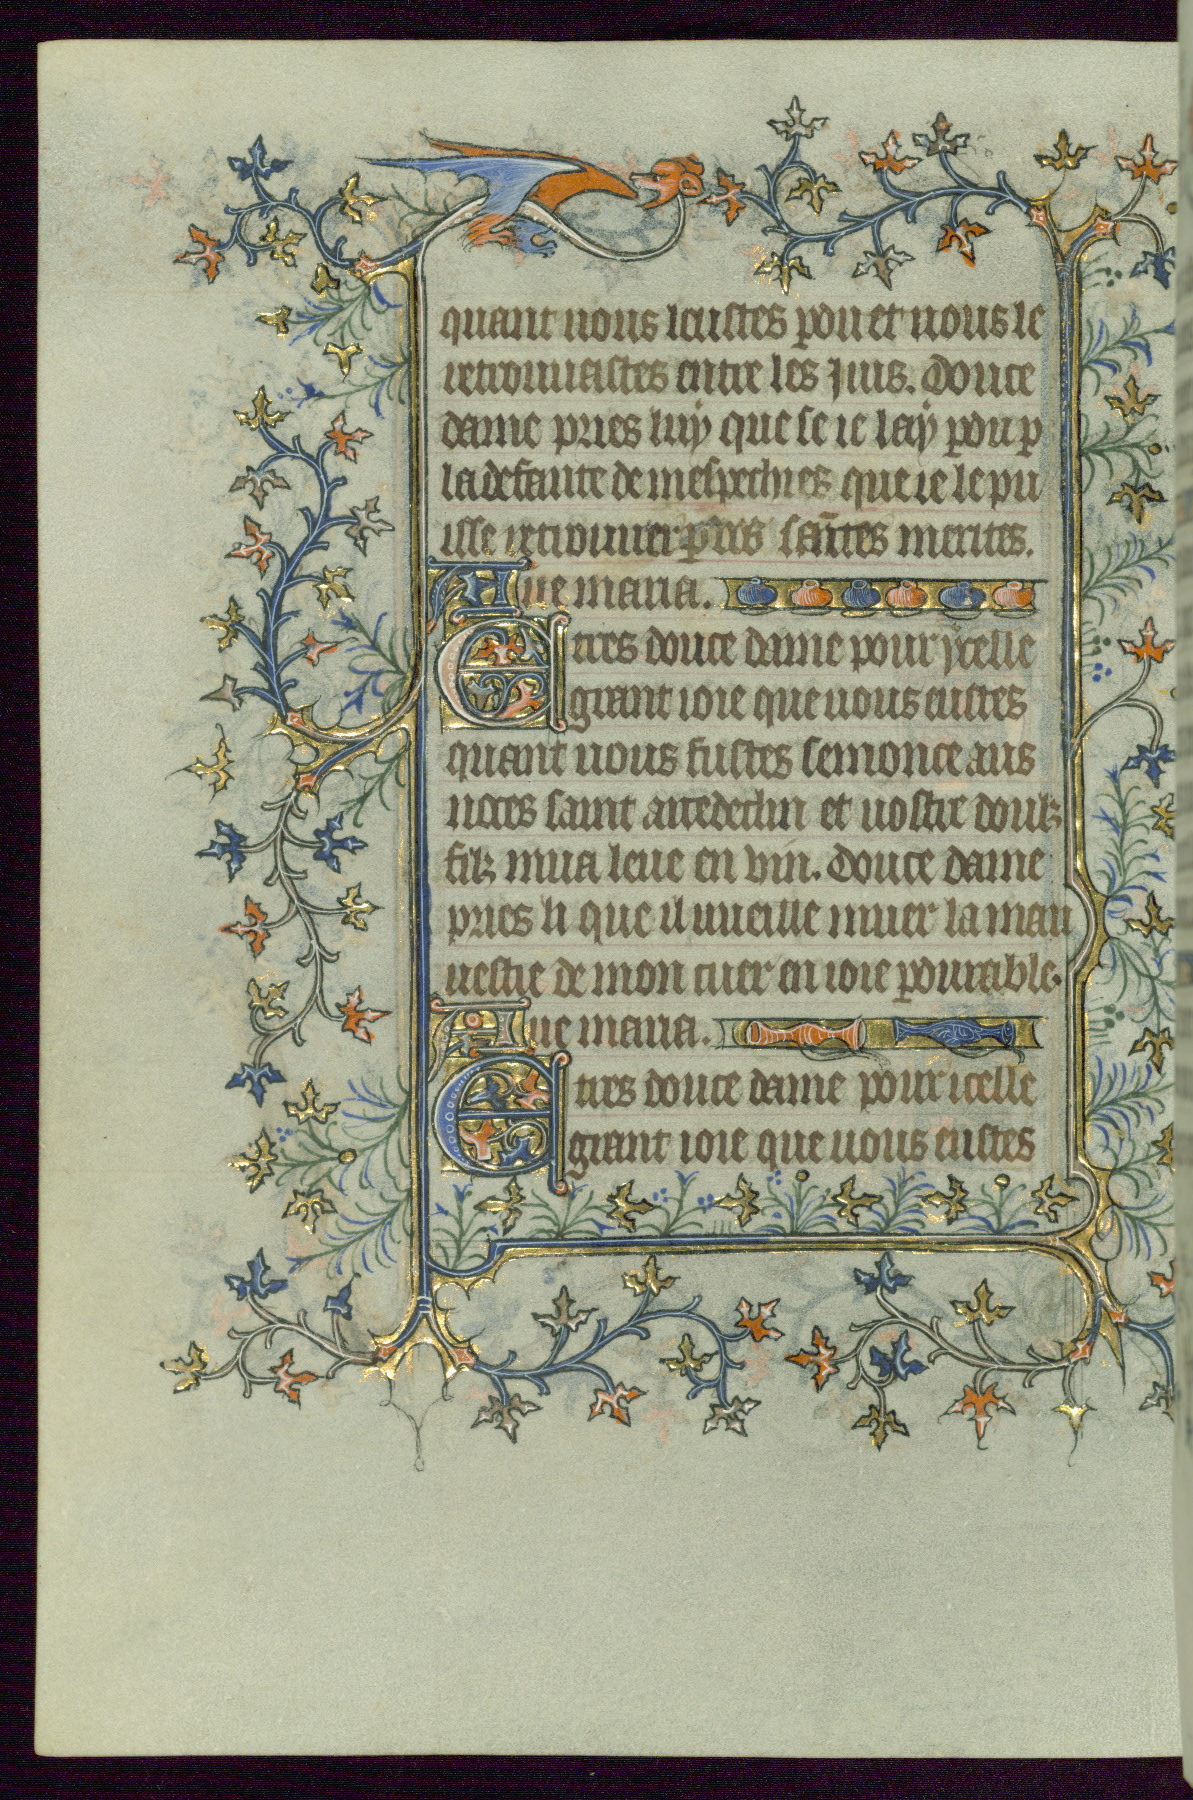 quant uous leustes pdu et uous le
retrouuastes entre les Juis. Douce
dame pries luy que se ie lay pdu p
la defaute de mes pechies que ie le pu
isse retrouuer p uos saītes merites.
Aue maria.
E tres douce dame pour ycelle
grant ioie que uous eustes
quant uous fustes semonce aus
noces saint arcedeclin et uostre douls
fils mua leue en vin. Douce dame
pries li que il uueille muer la mau
uestie de mon cuer en ioie pdurable.
Aue maria.
E tres douce dame pour icelle
grant ioie que uous eustes